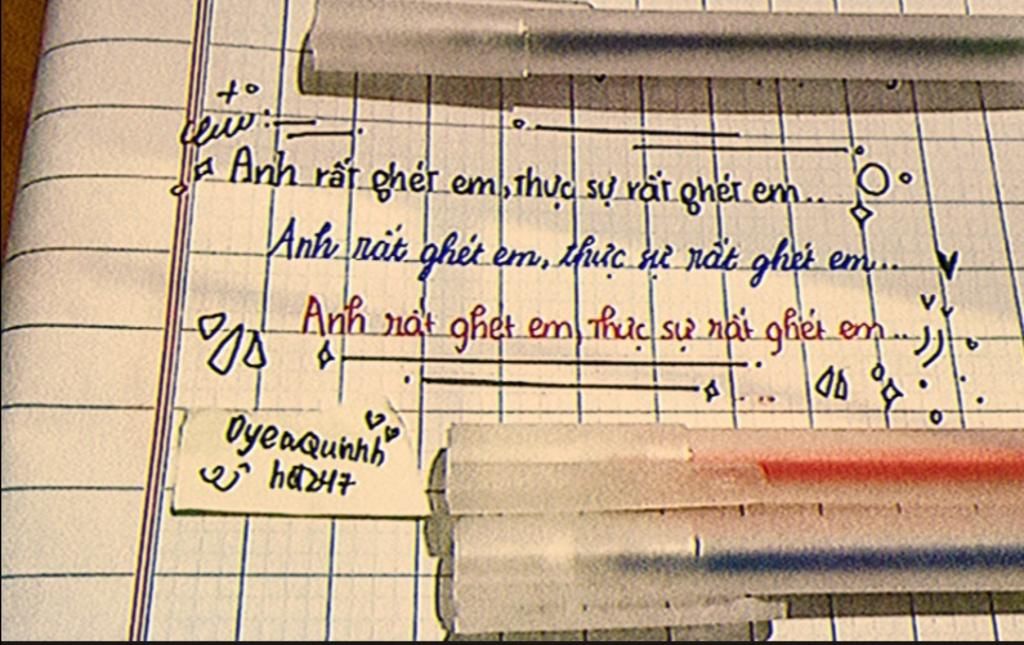 Anh rất ghét em, thực sự rất ghét em...
Anh rất ghét em, thực sự rất ghét em...
Anh rất ghét em, thực sự rất ghét em...